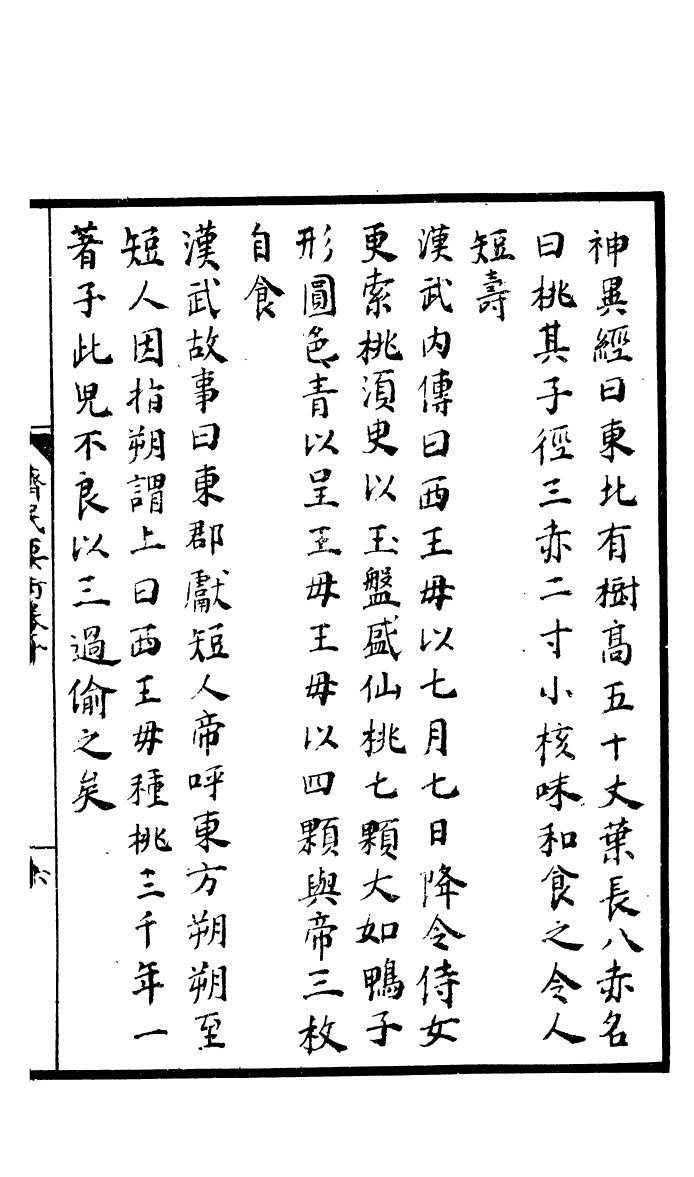 神異經曰東北有樹高五十丈葉長八赤名
曰桃其子徑三赤二寸小核味和食之令人
短壽
漢武内傳曰西王母以七月七日降令侍女
更索桃湏臾以玉盤盛仙桃七顆大如鴨子
形圓色青以呈王母王母以四顆與帝三枚
自食
漢武故事曰東郡獻短人帝呼東方朔朔至
短人因指朔謂上曰西王母種桃三千年一
著子此兒不良以三過偷之矣
齊民要術卷十
六